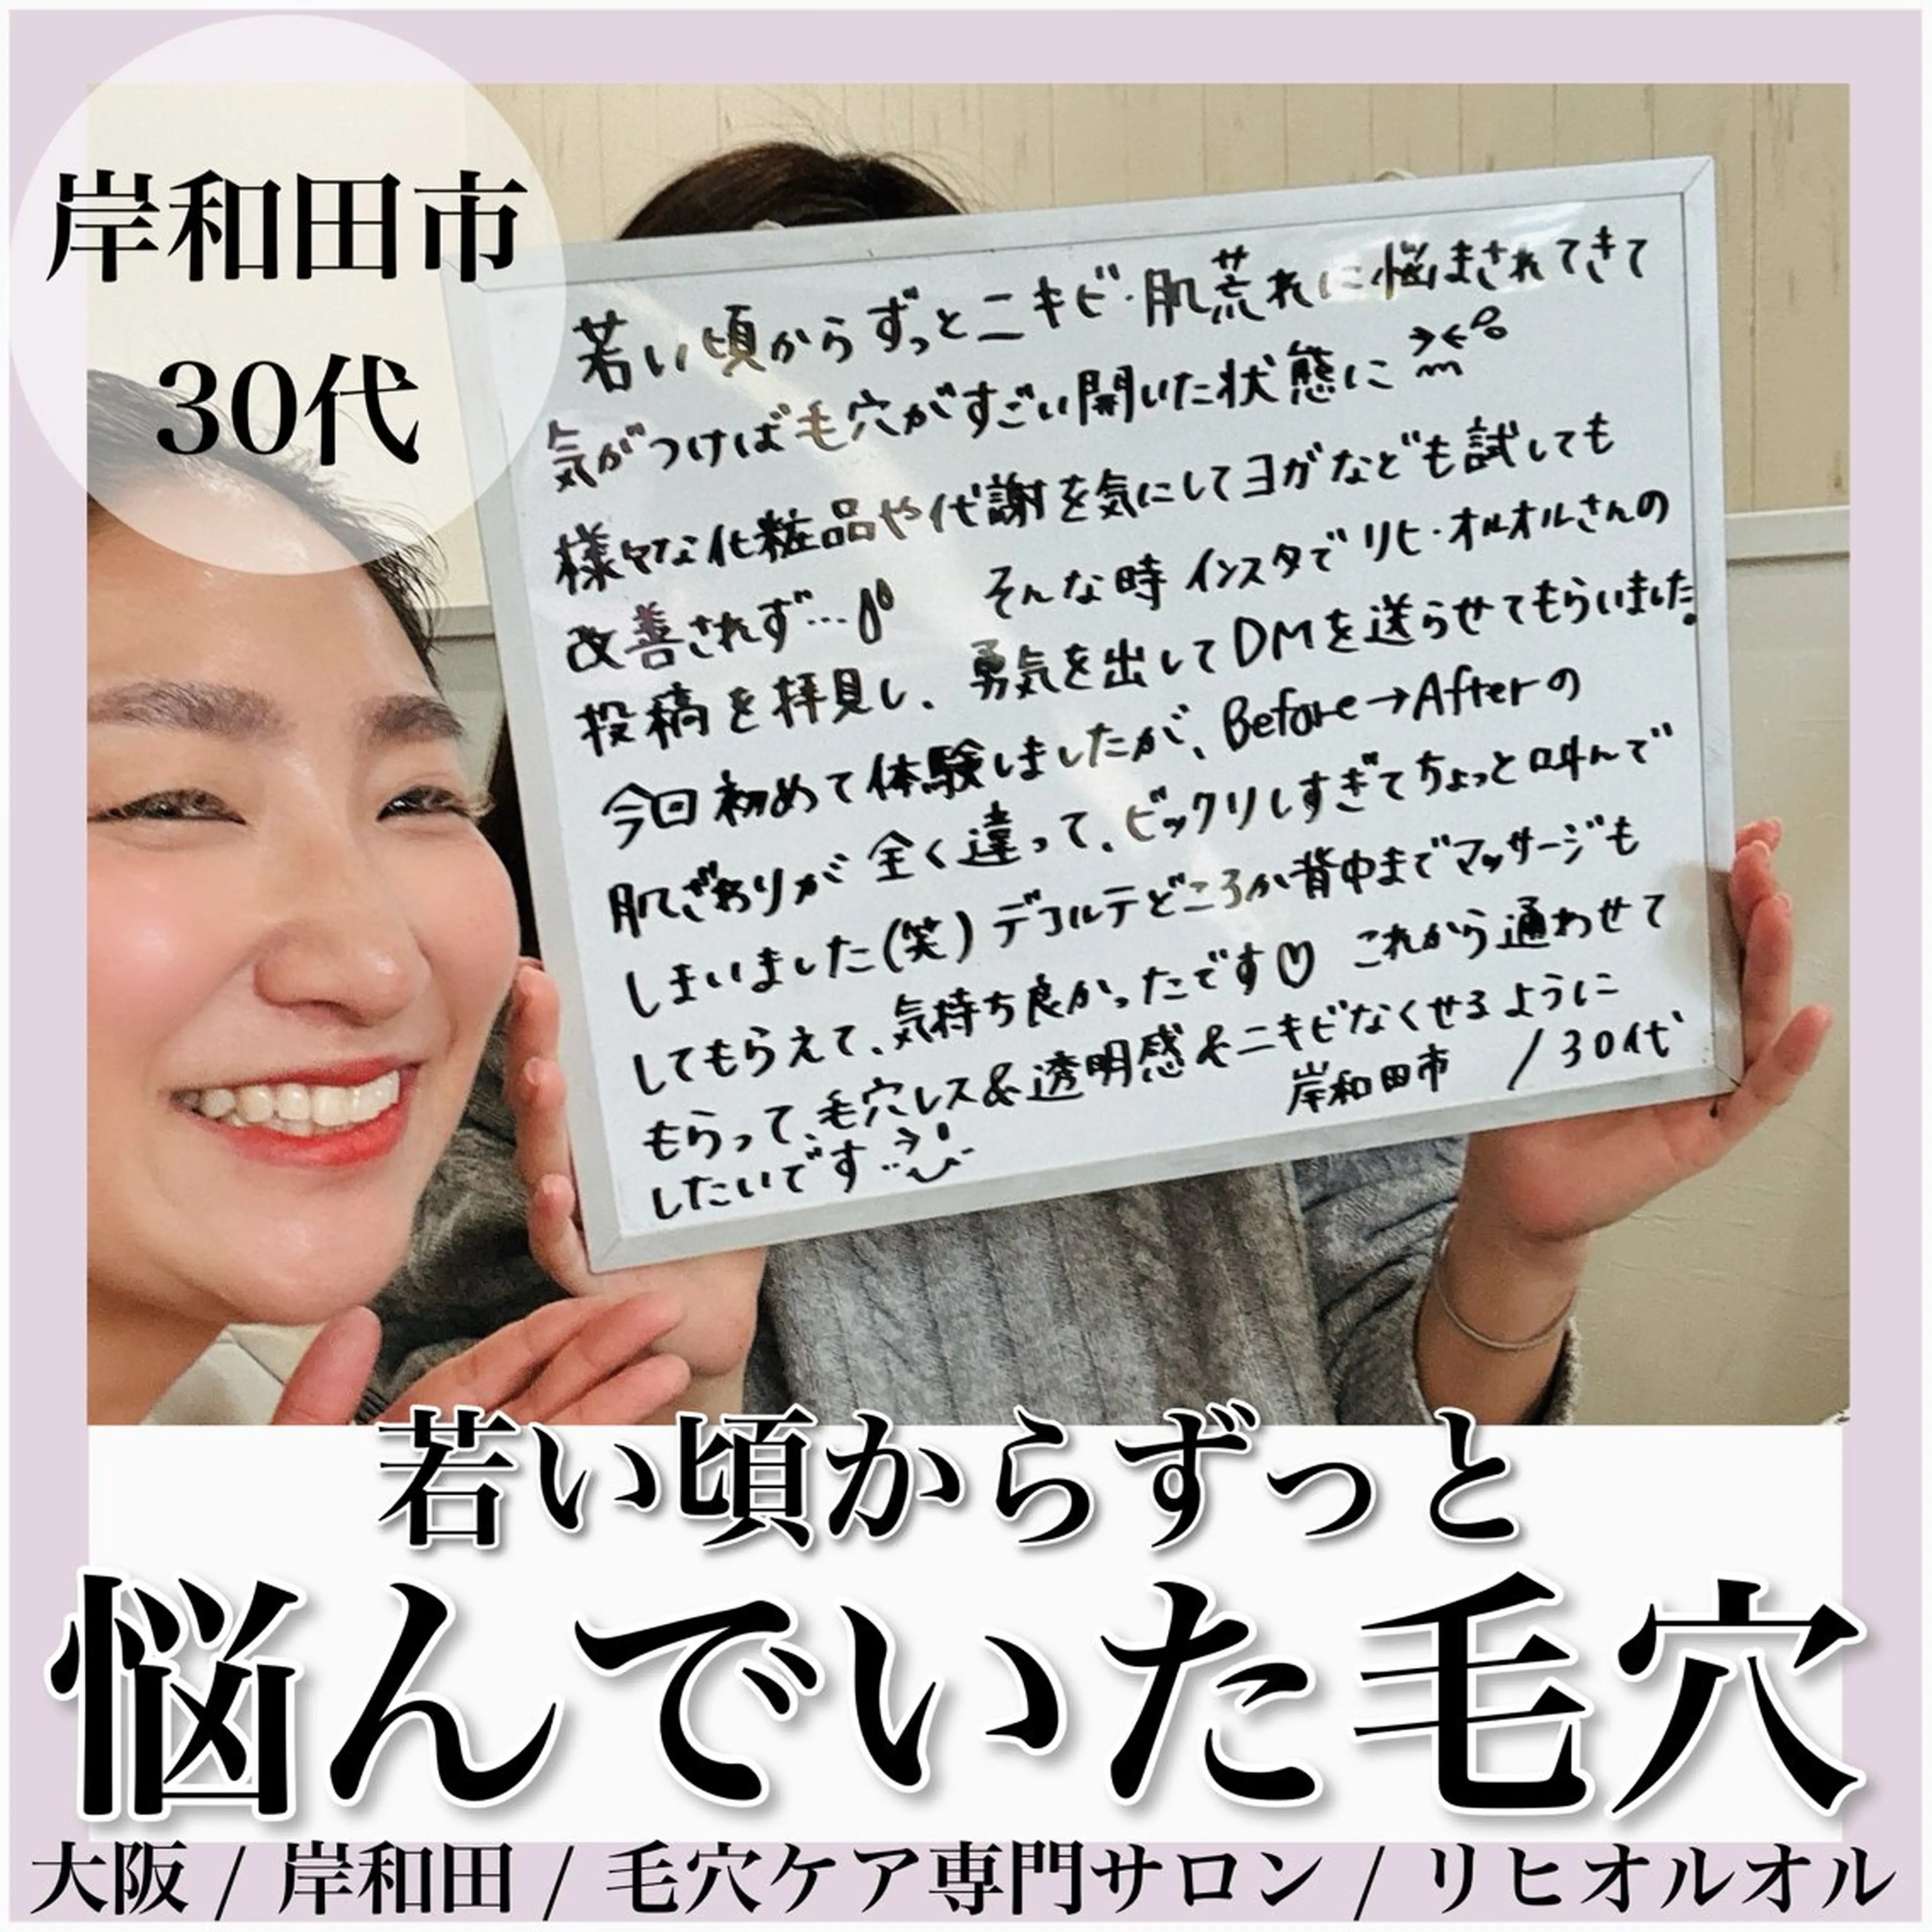 岸和田市
30代
若い頃からずっとニキビ・肌荒れに悩まされてきて
気がつけば毛穴がすごい開いた状態に
様々な化粧品や代謝を気にしてヨガなども試しても
改善されず… そんな時インスタでリヒ・オルオルさんの
投稿を拝見し、勇気を出してDMを送らせてもらいました。
今回初めて体験しましたが、Before→Afterの
肌ざわりが全く違って、ビックリしすぎてちょっと叫んで
しまいました(笑) デコルテどころか背中までマッサージも
してもらえて、気持ち良かったです♡ これから通わせて
もらって、毛穴レス&透明感&ニキビなくせるように
したいです
岸和田市 /30代
若い頃からずっと
悩んでいた毛穴
大阪 / 岸和田 / 毛穴ケア専門サロン / リヒオルオル